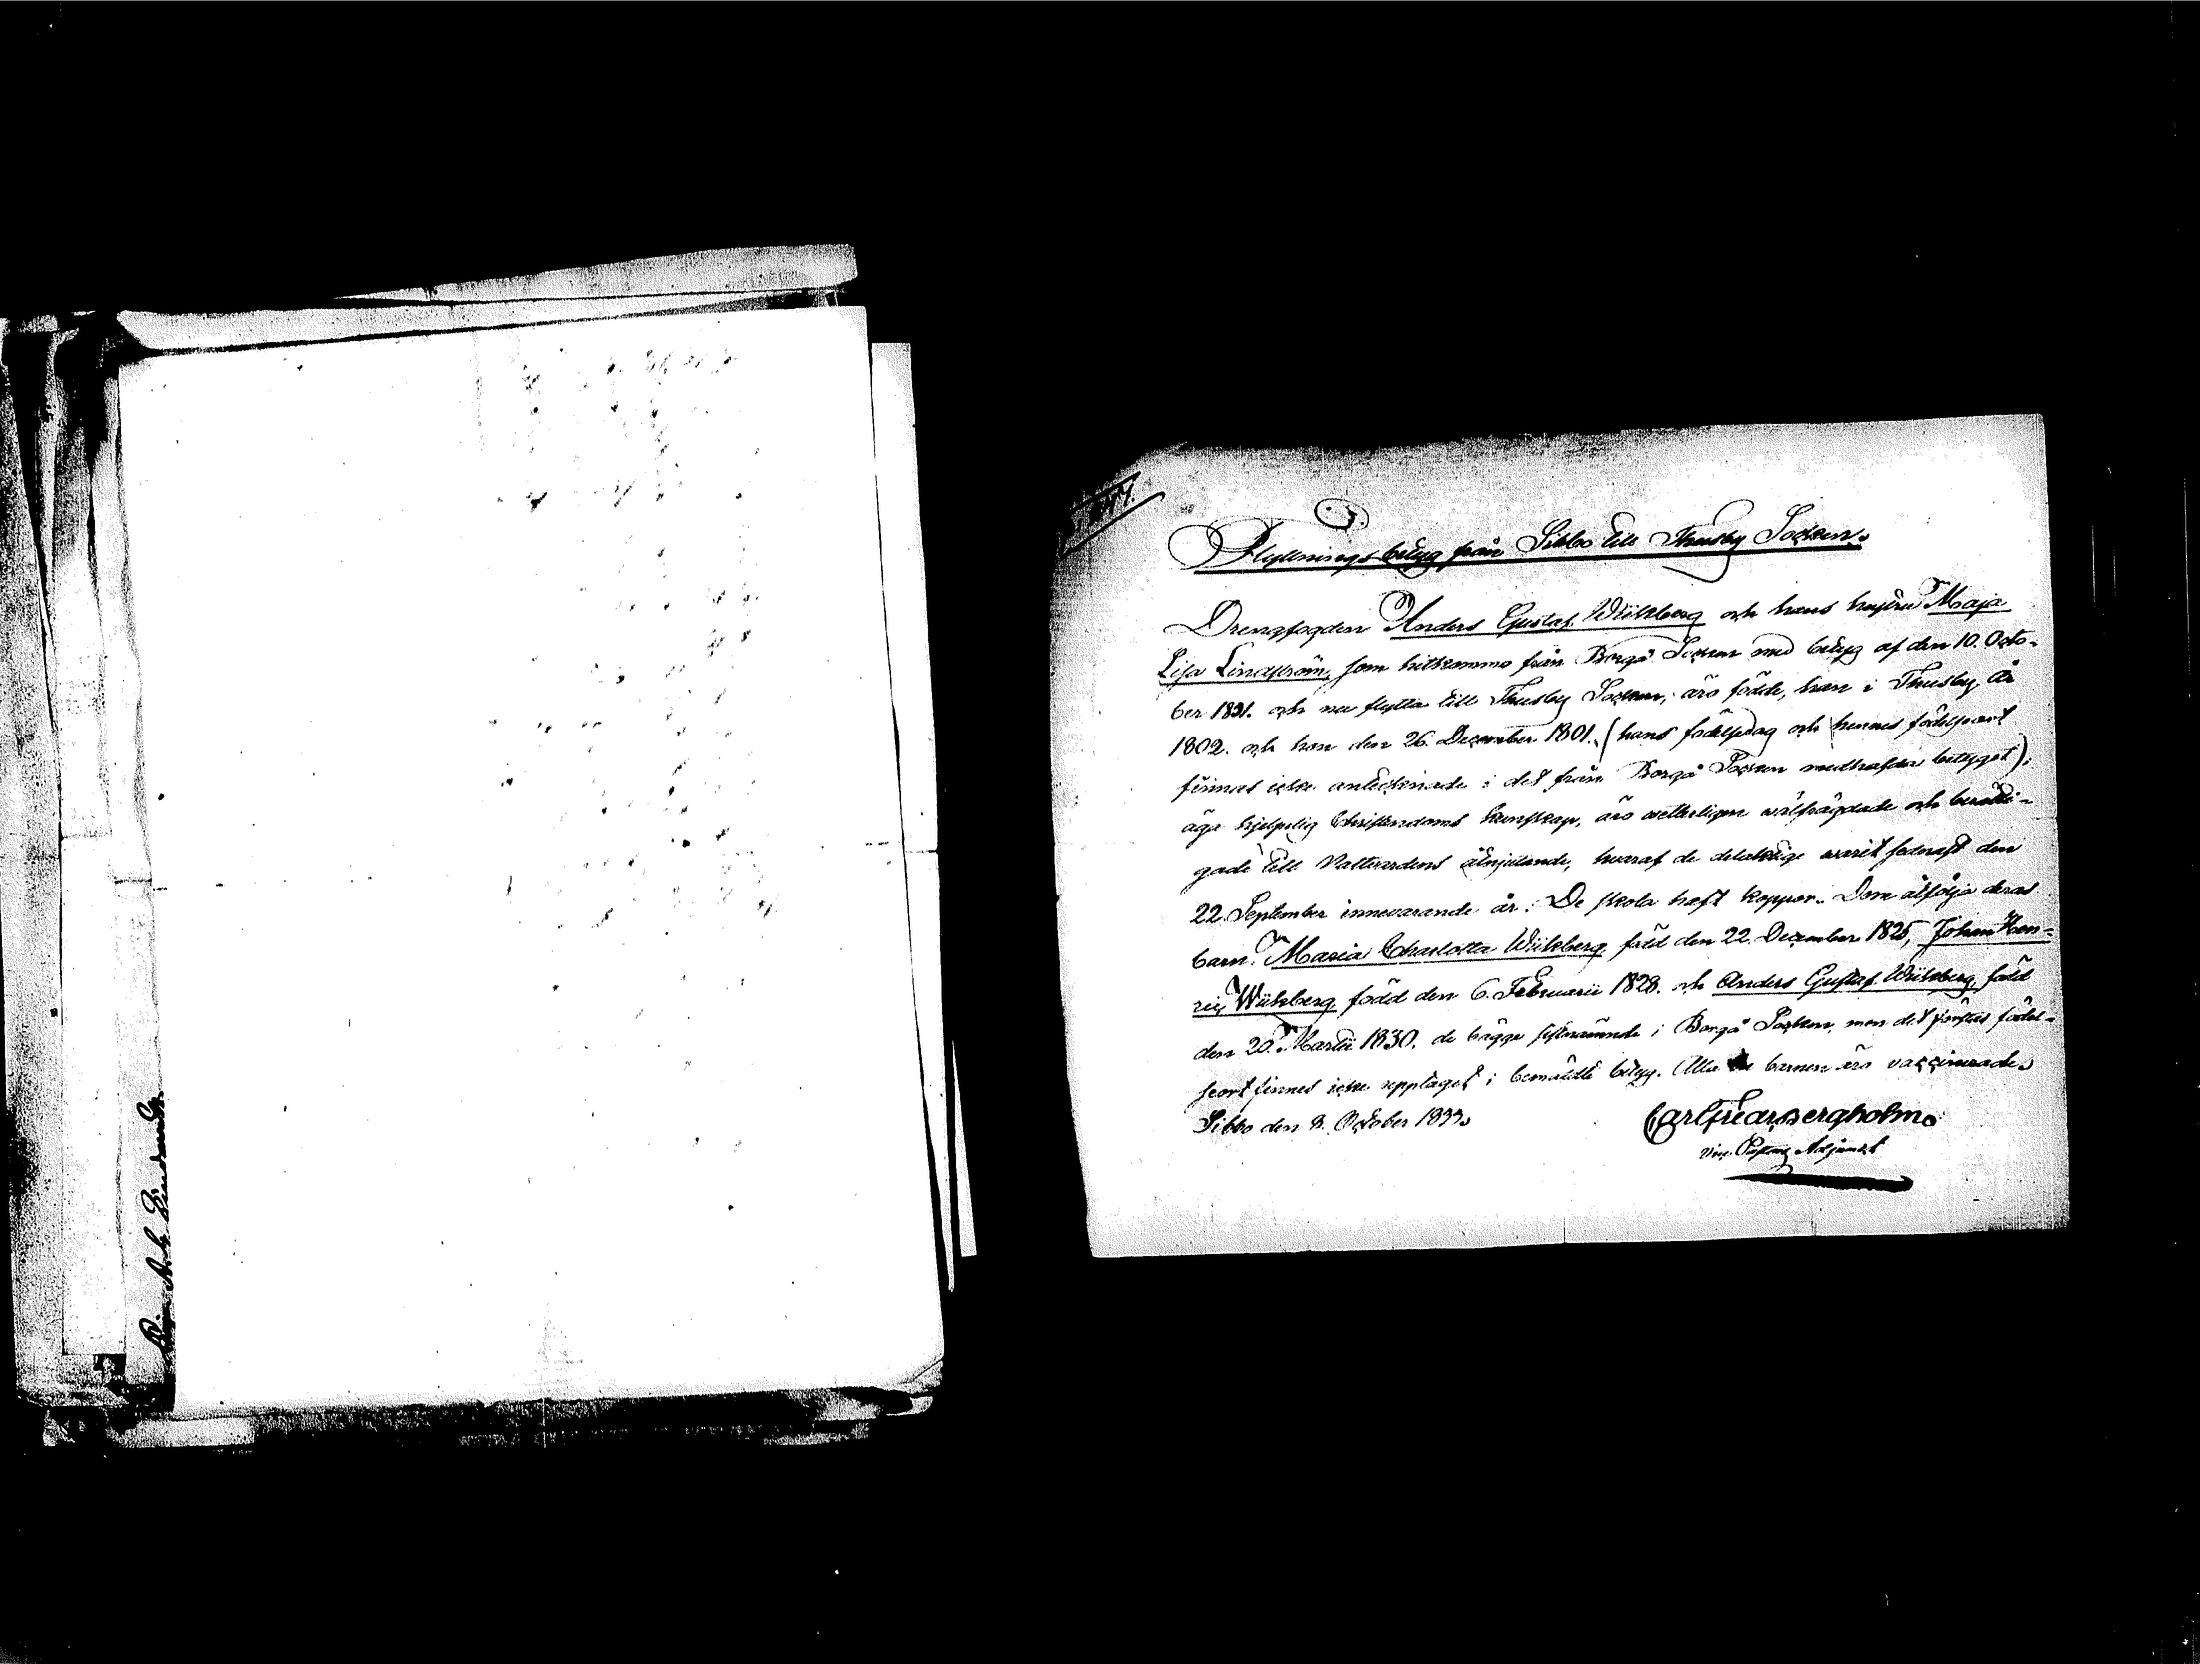 Flyttningsbetyg från Sibbo till Thusby Socken.
Drengfogden Anders Gustaf Wiikberg och hans hustru Maja
Lisa Lindström, som hitkommo från Borgå Socken med betyg af den 10. Octo-
ber 1831. och nu flytta till Thusby Socken, äro födde, han i Thusby år
1802. och hon den 26. December 1801. (hans födelsedag och hennes födelseort
finnas icke antecknade i det från Borgå Socken medhafda betyget);
äga hjelpelig Christendoms kunskap, äro wetterligen wälfrägdade och berätti-
gade till Nattvardens åtnjutande, hvaraf de delaktige warit sednast den
22. September innevarande år. De skola haft koppor. Dem åtfölja deras
barn: Maria Charlotta Wiikberg, född den 22. December 1825, Johan Hen-
ric Wiikberg född den 6. Februarii 1828. och Anders Gustaf Wiikberg, född
den 20. Martii 1830. de bägge sistnämnde i Borgå Socken, men det förstas födel-
seort finnes icke upptaget i bemäldte betyg. Alla barnen äro vaccinerade.
Sibbo den 8. October 1833.
Bergholm.
Vice Pastors Adjunct